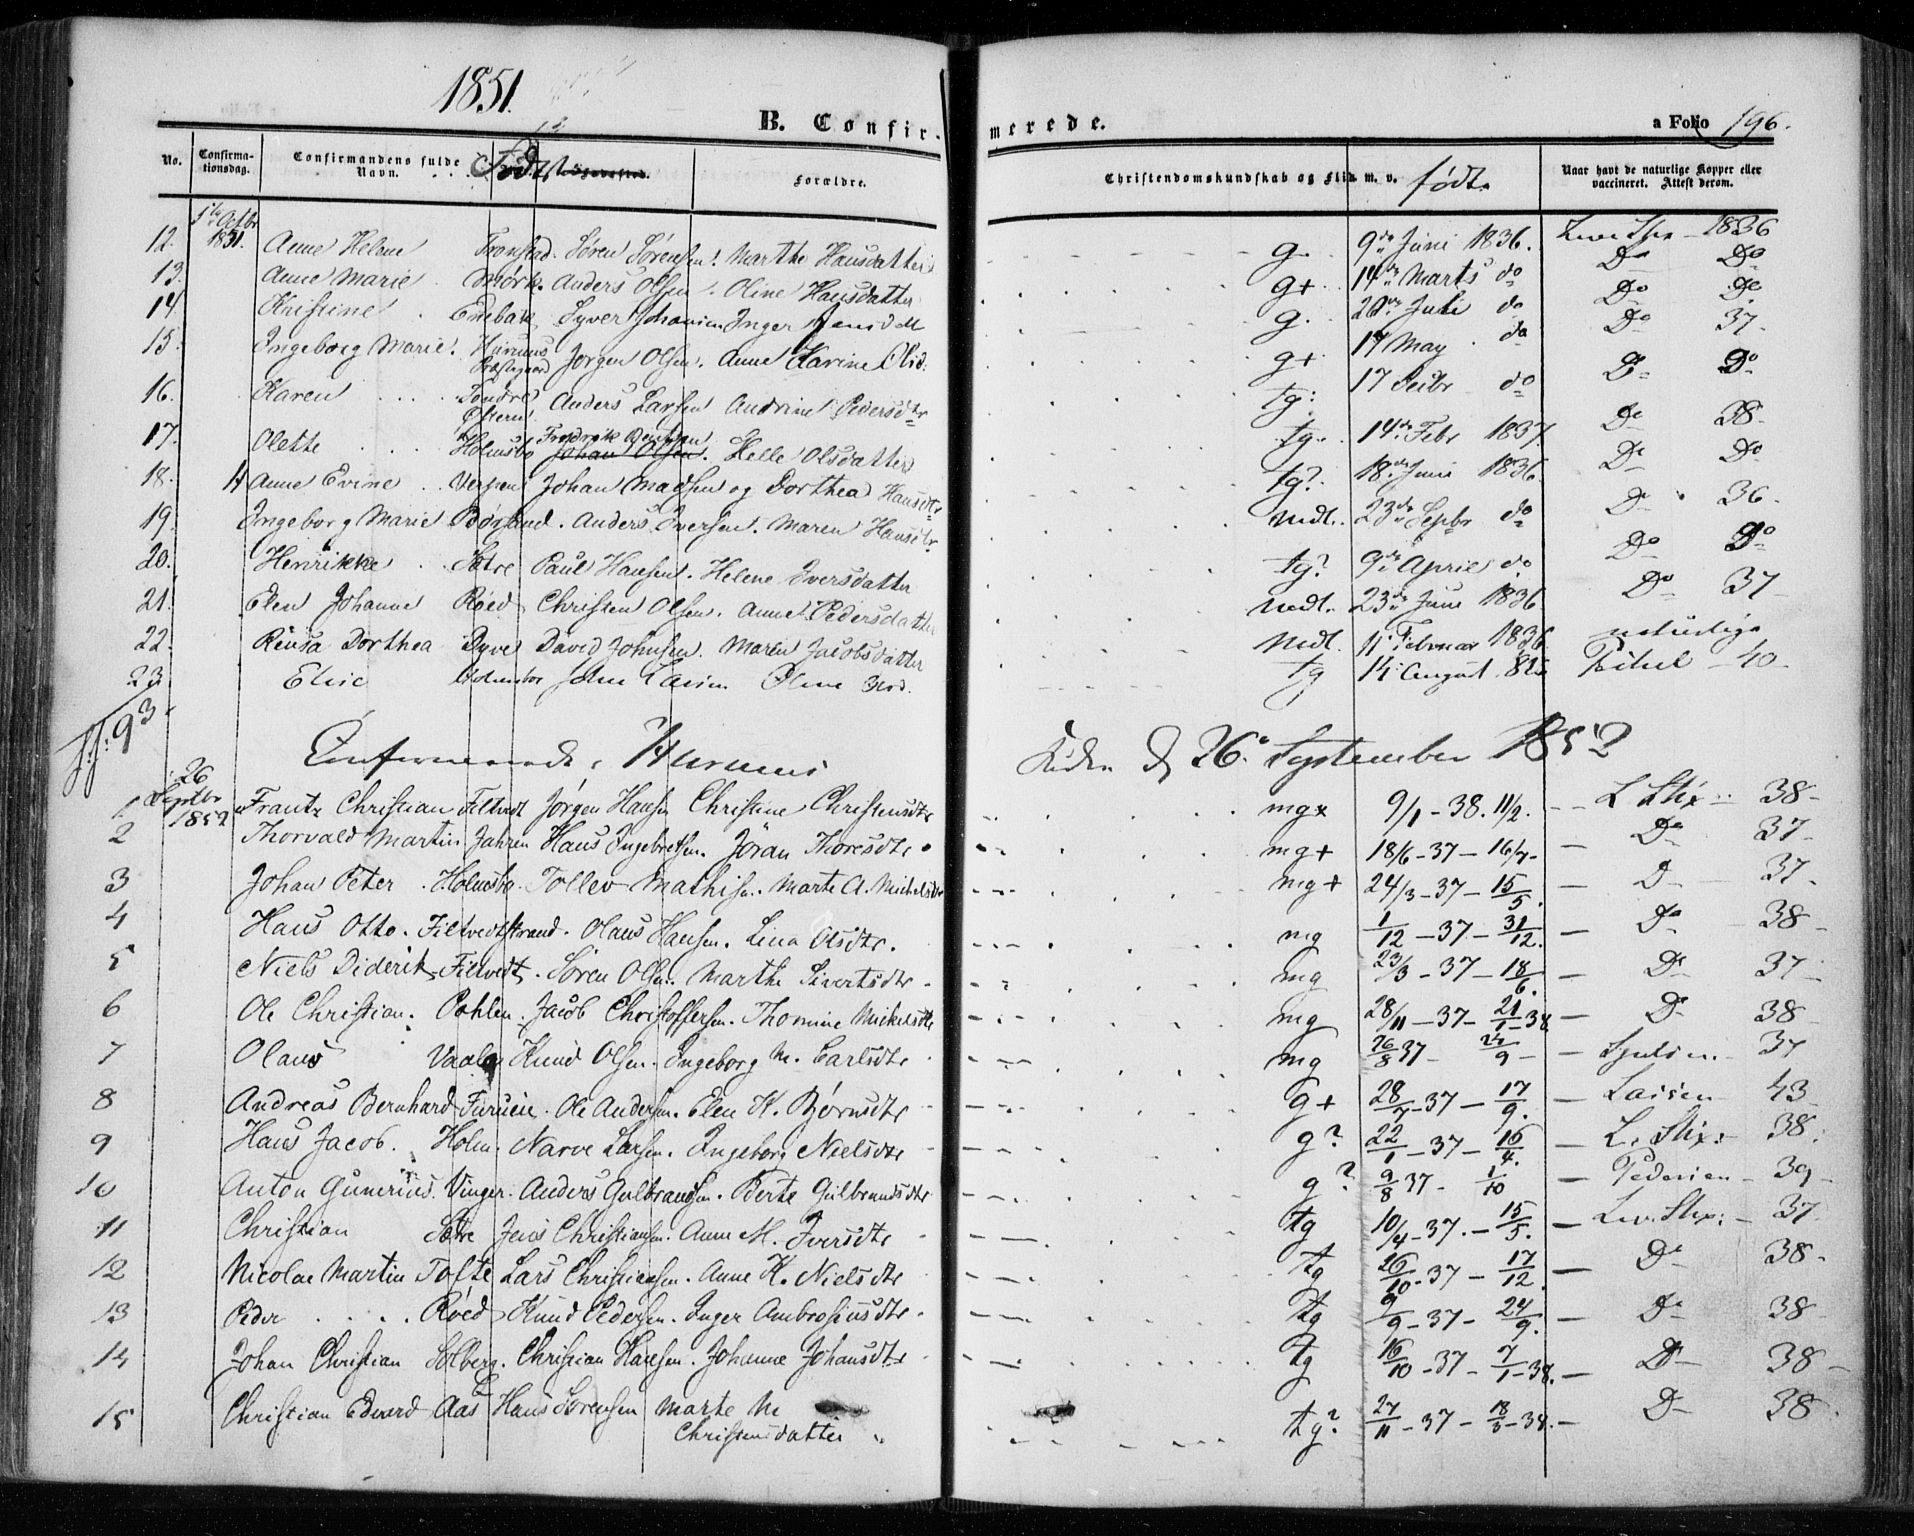 1851.
B. Confirmerede.
a Folio 196.
No. Confirmationsdag. Confirmandens fulde Navn. Føde Forældre. Christendomskundskab og Flid m. v. fødte Naar havt de naturlige Kopper eller vaccineret. Attest derom.
Octbr 1851.
12. Anne Helene Tronstad. Søren Sørensen. Marthe Hansdatter g. 9de Juni 1836. 1836
13. Anne Marie Mørk. Anders Olsen. Oline Hansdatter g+ 14de Marts do Do Do
14 Kristine Enebak Syver Johansen Inger Jensd g. 20de Juli do Do Do
15. Ingeborg Marie. Hurums Præstegaard Jørgen Olsen. Anne Karine Olsd. g+ 17 May do Do 37.
16. Karen Tondre Anders Larsen Andrine Pedersdtr tg: 17 Decbr do Do Do
17. Olette Holmsbo Fredrik Johan Olsen. Helle Olsdatter tg. 14de Febr 1837 Do 38.
18. Anne Evine Verpen Johan Madsen og Dorthea Hansdtr tg? 18de Juni 1836. Do Do
19. Ingeborg Marie Rørsand. Anders Iversen. Maren Hansdtr mdl. 23de Septbr do Do 36.
20. Henrikke Sætre Paul Hansen. Helene Iversdatter tg? 9de April do Do Do
21. Elen Johanne Røed Christen Olsen. Anne Pedersdatter mdl. 23de Juni 1836. Do 37
22. Rinsa Dorthea Dyve David Johnsen. Maren Jacobsdatter Mdl. 11 Februar 1836 naturlige
23 Elise Holmsbo John Larsen Oline tg 14 August 40.
Confirmerede i Hurums Kirke d 26de September 1852
26 Septbr 1852
1. Frantz Christian Filtvedt Jørgen Hansen Christine Christensdtr mg+ 9/1 - 38. 11/2. 38-
2 Thorvald Martin Jahren Hans Ingebretsen. Jöran Thoresdtr mg+ 18/6 - 37 - 16/7. Do 37-
3 Johan Peter Holmsbo. Tollev Mathisen. Marte A. Mickelsdtr mg+ 24/3 - 37 - 15/5. D 37.
4 Hans Otto. Filtvedtstrand. Olaus Hansen. Lina Olsdtr. mg 1/12 - 37 - 31/12. Do 38
5 Niels Diderik Filtvedt. Søren Olsen. Marthe Sivertsdtr mg 23/3 - 37 - 18/6. Do 37
6 Ole Christian. Pohlen. Jacob Christoffersen. Thomine Mickelsdtr mg 28/11 - 37 - 21/1 - 38 Do 38
7 Olaus Knud Olsen. Ingeborg M. Carlsdtr mg 26/8 37 - 24/9 - 37
8 Andreas Bernhard Furueie. Ole Andersen. Elen K. Bjørnsdtr g+ 28/7 - 37 - 17/9. Larsen 43
9 Hans Jacob. Holm. Narve Larsen. Ingeborg Nielsdtr g? 22/1 - 37 - 16/4. 38.
10 Anton Gunerius. Vinger. Anders Gulbrandsen. Berte Gulbrandsdtr g? 9/8 37 - 1/10 Pedersen - 39
11 Christian Sætre Jens Christiansen. Anne M. Iversdtr tg 10/4 - 37. - 15/5. 37.
12 Nicolae Martin Tofte Lars Christiansen. Anne K. Nielsdtr tg 26/10 - 37 - 17/12. Do 38
13 Peder Røed Knud Pedersen. Inger Ambrosiusdtr tg 9/9 - 37 - 24/9. Do 38
14 Johan Christian Solberg. Christian Hansen. Johanne Johansdtr tg 16/10 - 37 - 7/1 - 38. D 38
15 Christian Edvard Aas Hans Sørensen Marte M Christensdatter tg? 27/11 - 37 - 18/3 - 38. D 38